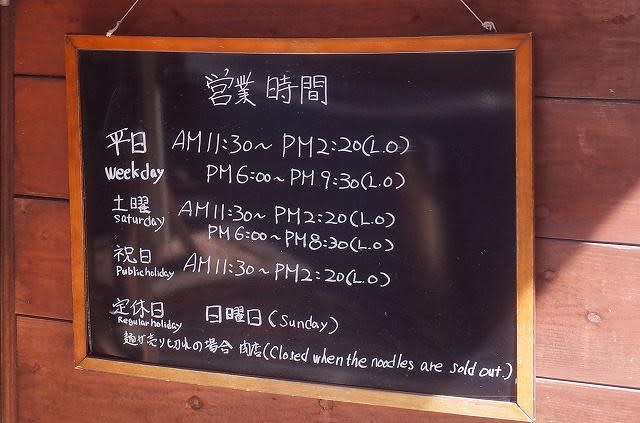 営業時間
平日 AM11:30～PM2:20(L.O)
weekday PM6:00～PM9:30(L.O)
土曜 AM11:30～PM2:20(L.O)
saturday PM6:00～PM8:30(L.O)
祝日 AM11:30～PM2:20(L.O)
Public holiday
定休日 日曜日(Sunday)
Regular holiday
麺が売り切れの場合 閉店(Closed when the noodles are sold out.)